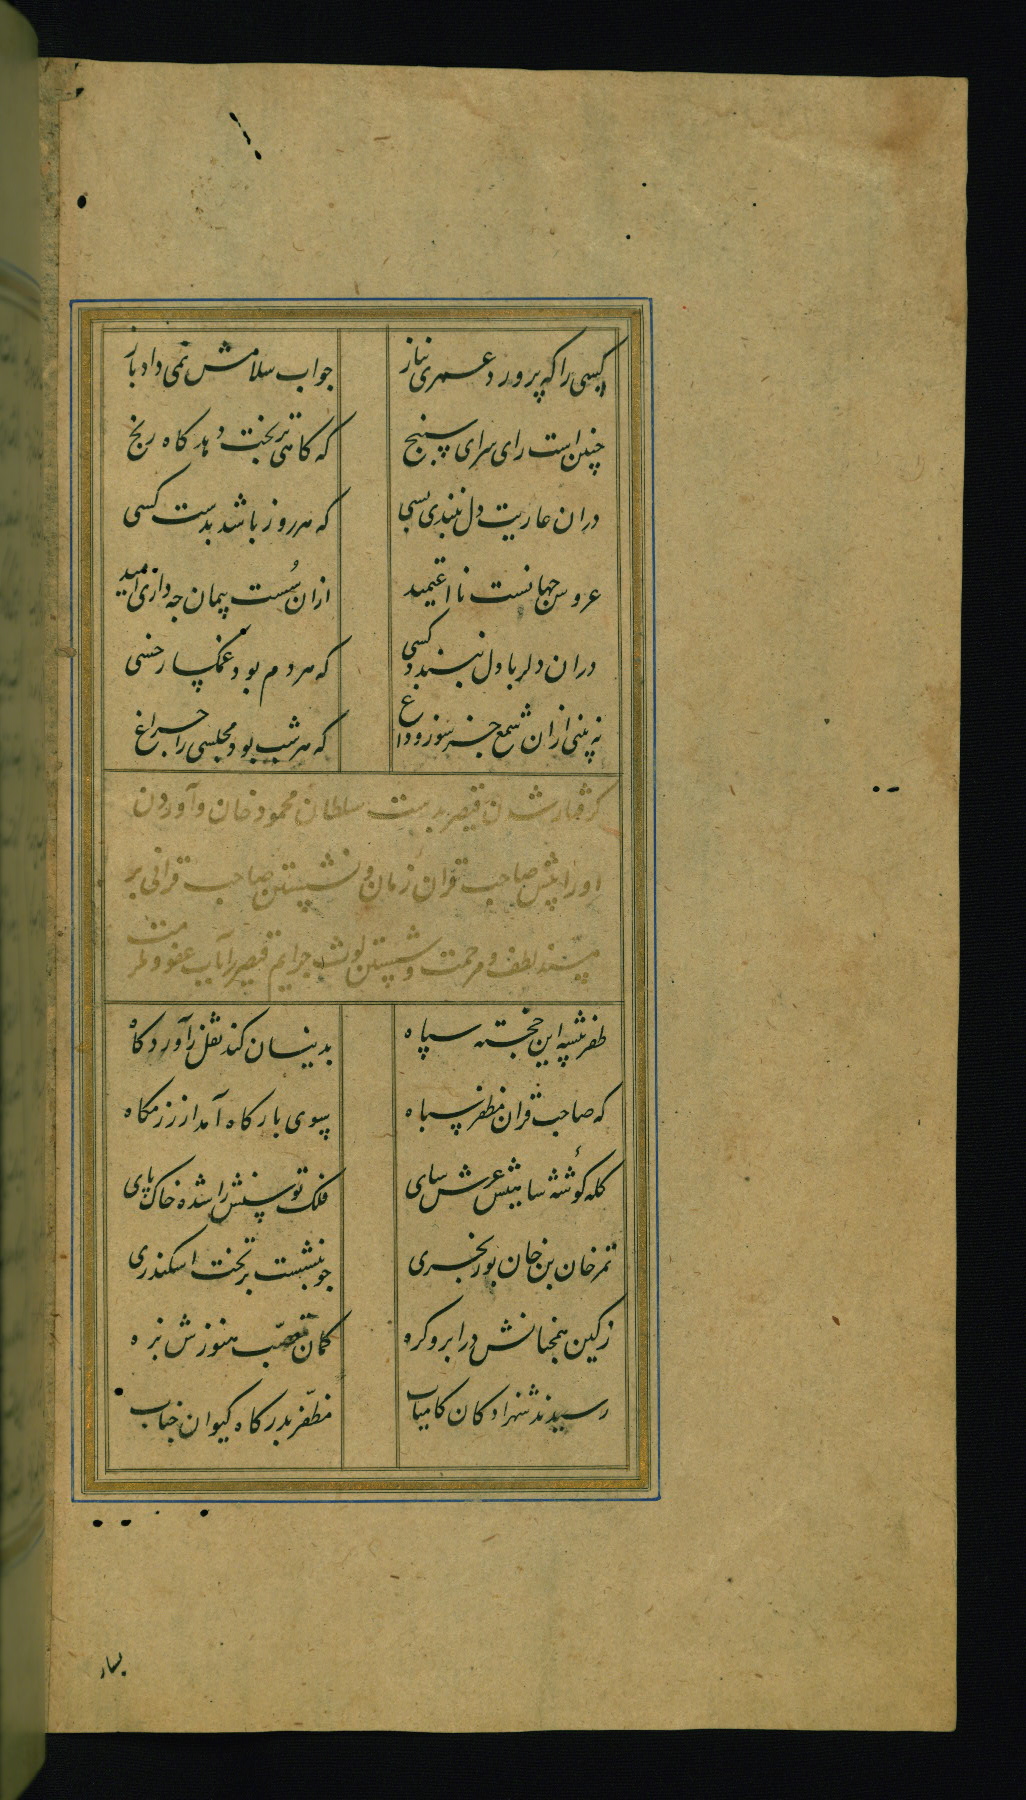 کسی را که پرورد عمری بناز جواب سلامش نمی داد باز
چنین است رای سرای سپنج که کاهی تربخت دهد کاه رنج
دران عاریت دل نبندی بسی که هر روز باشد بدست کسی
عروس جهانست نا اعتمید ازان سست پیمان چه داری امید
دران دلربا دل نبندد کسی که هر دم بود غمکسار خسی
نه بینی ازان شمع جز سوز و داغ که هر شب بود مجلسی را چراغ
کرفتار شدن قیصر بدست سلطان محمود خان و آوردن
او را پیش صاحب قران زمان و نشستن صاحب قرانی بر
مسند لطف و مرحمت و شستن لوث جرایم قیصر را بآب عفو و مرمت
ظفر پیشه این خجسته سپاه بدینسان کند نقل آوردکاه
که صاحب قران مظفر سپاه بسوی بارکاه آمد از رزمکاه
کله کوشه سابیش عرش سای فلک توسنش را شده خاک پای
تمر خان بن خان بوزنجری چو بنشست بر تخت اسکندری
ز کین همچنانش در ابرو کره کمان تعصب هنوزش بزه
رسیدند شهزادکان کامیاب مظفر بدرکاه کیوان جناب